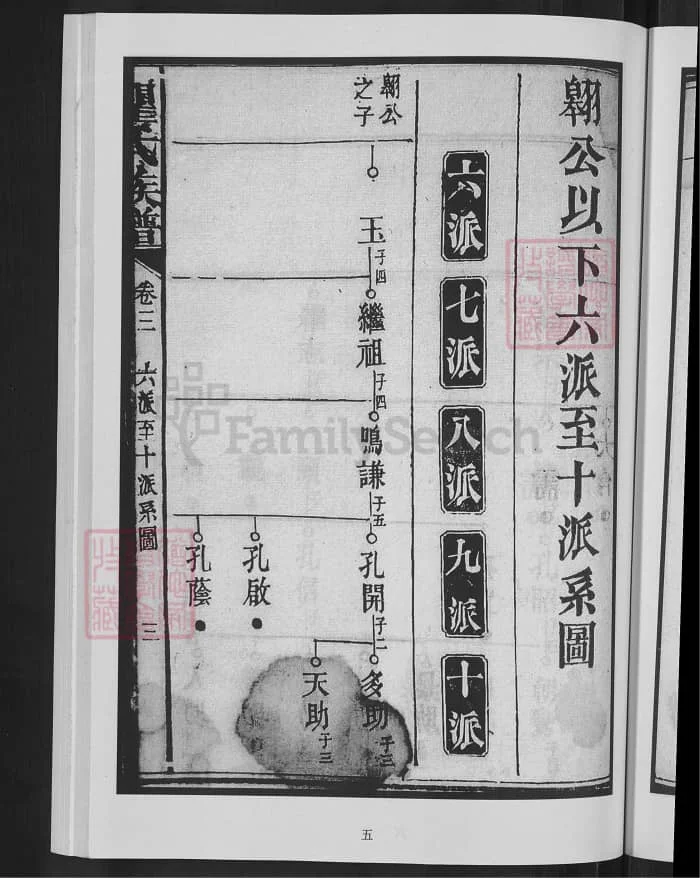 翱公以下六派至十派系圖
六派
七派
八派
九派
十派
翱公
之子
玉
子四
繼祖
子四
鳴謙
子五
孔開
子二
孔啟
孔蔭
多助
子三
天助
子三
氏族譜
卷三
六派至十派系圖
三
五
FamilySearch